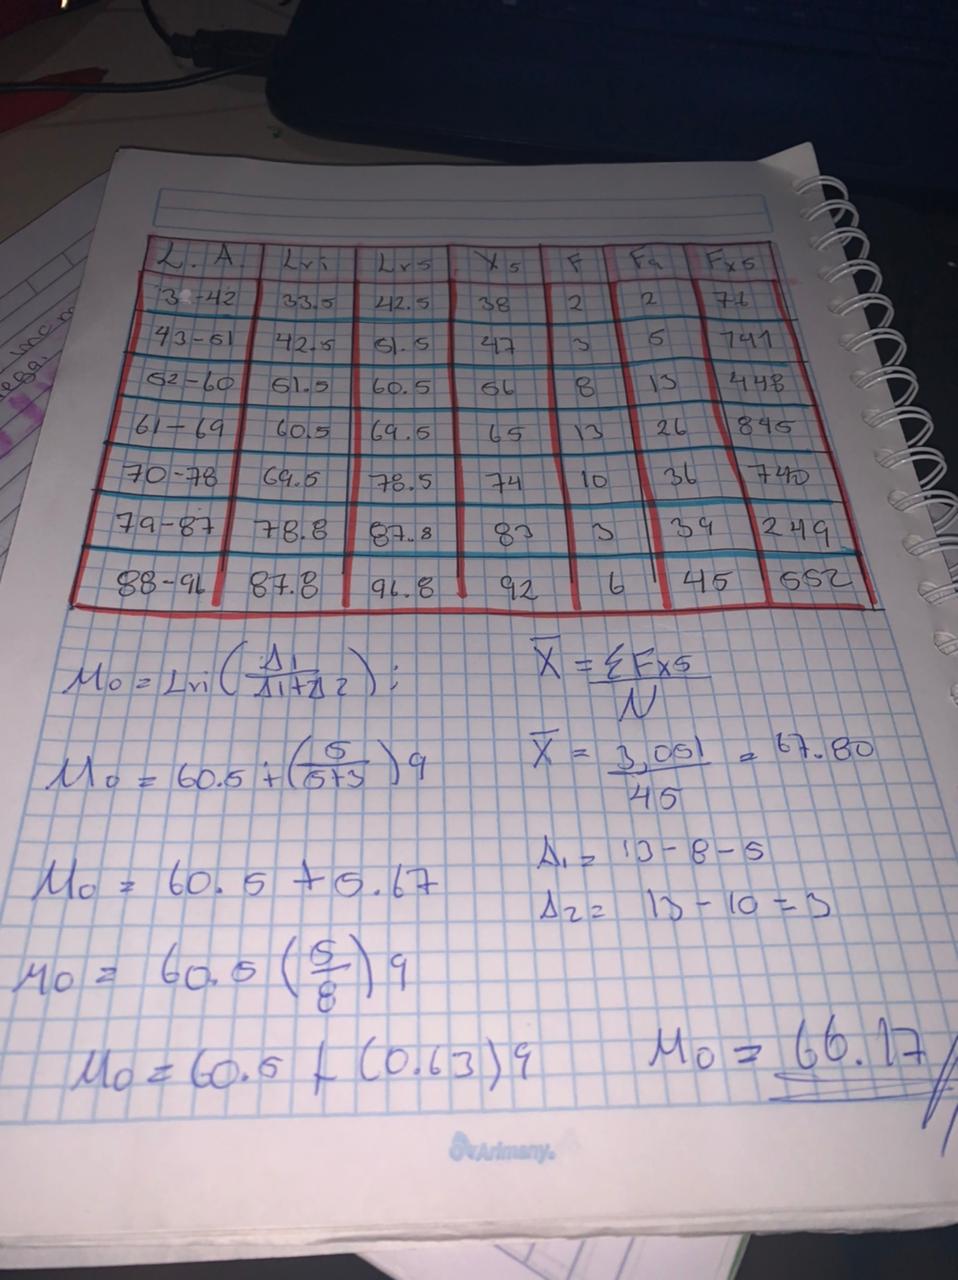 L. A. Lri Lrs Xs F Fa Fxs
3 -42 33.5 42.5 38 2 2 76
43-51 42.5 51.5 47 3 5 141
52-60 51.5 60.5 56 8 13 448
61-69 60.5 69.5 65 13 26 845
70-78 69.5 78.5 74 10 36 740
79-87 78.8 87.8 83 3 39 249
88-96 87.8 96.8 92 6 45 552
Mo = Lri (Δ1/Δ1+Δ2) i
X̄ = ΣFxs/N
Mo = 60.5 + (5/5+3) 9
X̄ = 3,051/45 = 67.80
Δ1 = 13-8-5
Mo = 60.5 + 5.67
Δ2 = 13-10=3
Mo = 60.5 (5/8) 9
Mo = 60.5 + (0.63) 9
Mo = 66.17
Arimany.